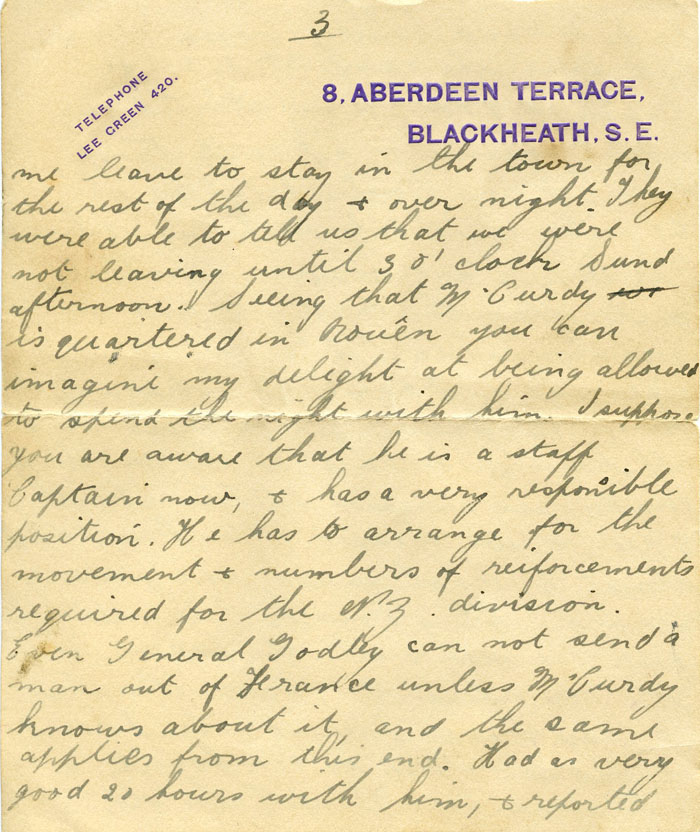 3
TELEPHONE
LEE GREEN 420.
8, ABERDEEN TERRACE,
BLACKHEATH, S.E.
me leave to stay in the town for
the rest of the day + over night. They
were able to tell us that we were
not leaving until 3 o'clock Sund
afternoon. Seeing that McCurdy
is quartered in Rouen you can
imagine my delight at being allowed
to spend the night with him. I suppose
you are aware that he is a staff
Captain now, + has a very responsible
position. He has to arrange for the
movement + numbers of reiforcements
required for the N.Z. division.
Even General Godley can not send a
man out of France unless McCurdy
knows about it, and the same
applies from this end. Had as very
good 20 hours with him, + reported